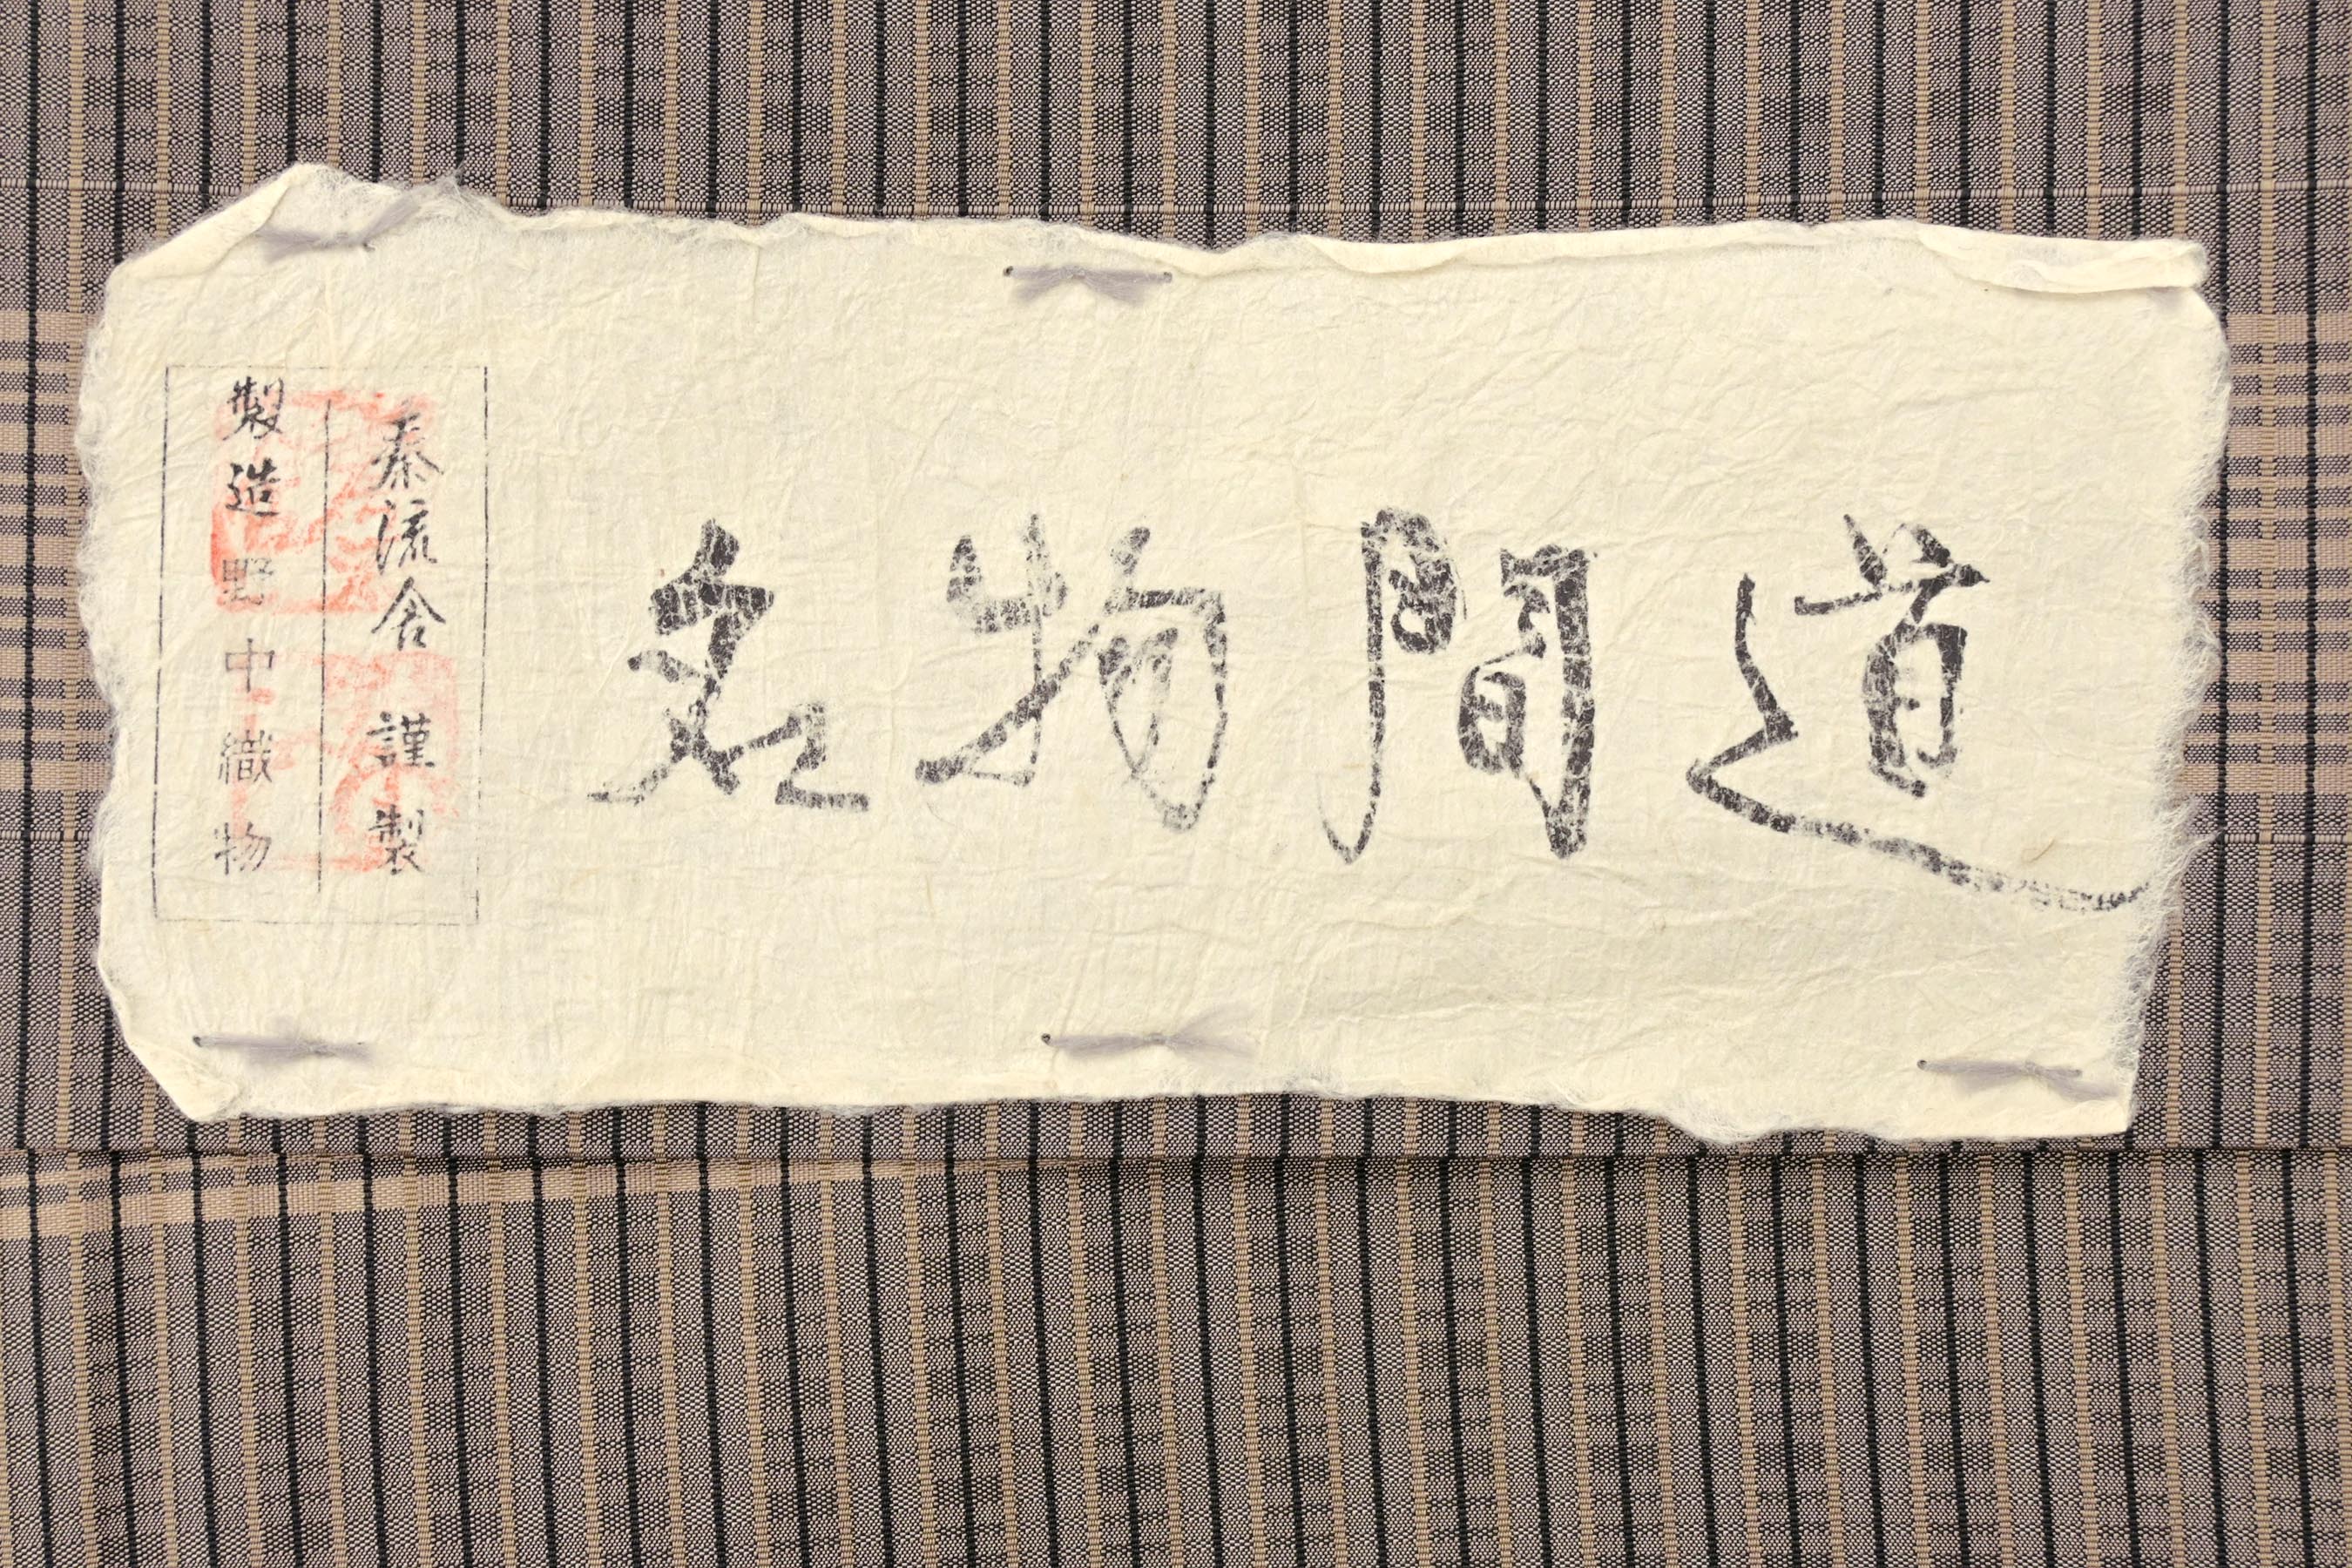 名物間道
秦流舎 謹製
製造 野中織物